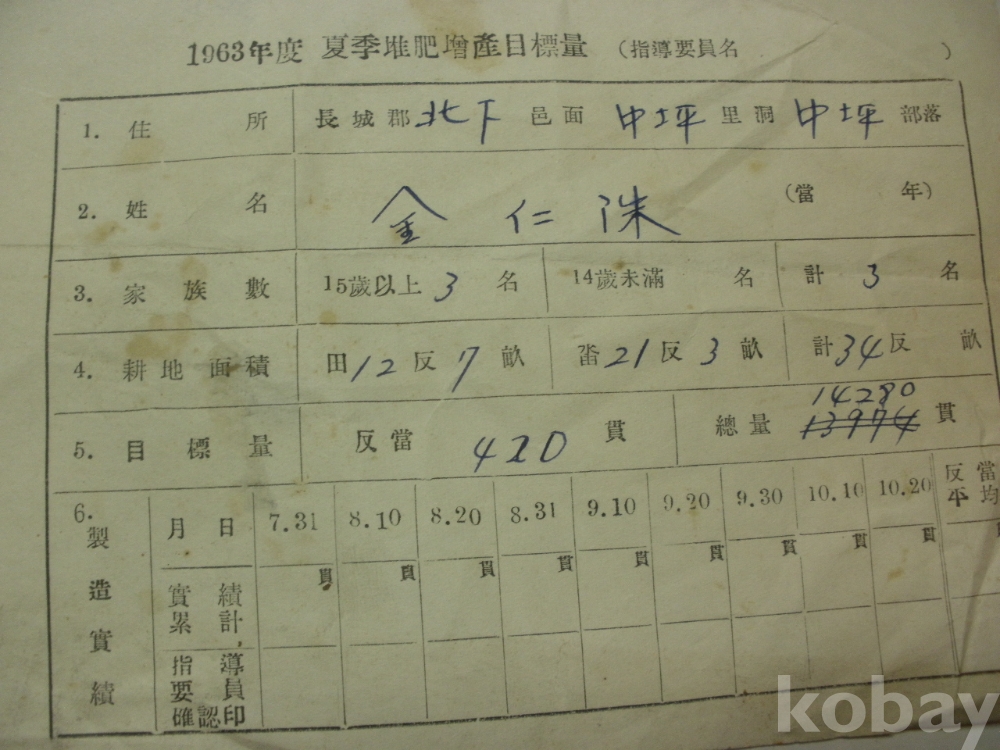 1963年度 夏季堆肥增產目標量 (指導要員名 )
1. 住所 長城郡 北下 邑面 中坪 里洞 中坪 部落
2. 姓名 金仁洙 (當 年)
3. 家族數 15歲以上 3 名 14歲未滿 名 計 3 名
4. 耕地面積 田 12 反 7 畝 畓 21 反 3 畝 計 34 反 畝
5. 目標量 反當 420 貫 總量 13974 14280 貫
6. 製造實績 月日 7.31 8.10 8.20 8.31 9.10 9.20 9.30 10.10 10.20 反當平均
實績累計, 貫 貫 貫 貫 貫 貫 貫 貫 貫
指導要員確認印
kobay